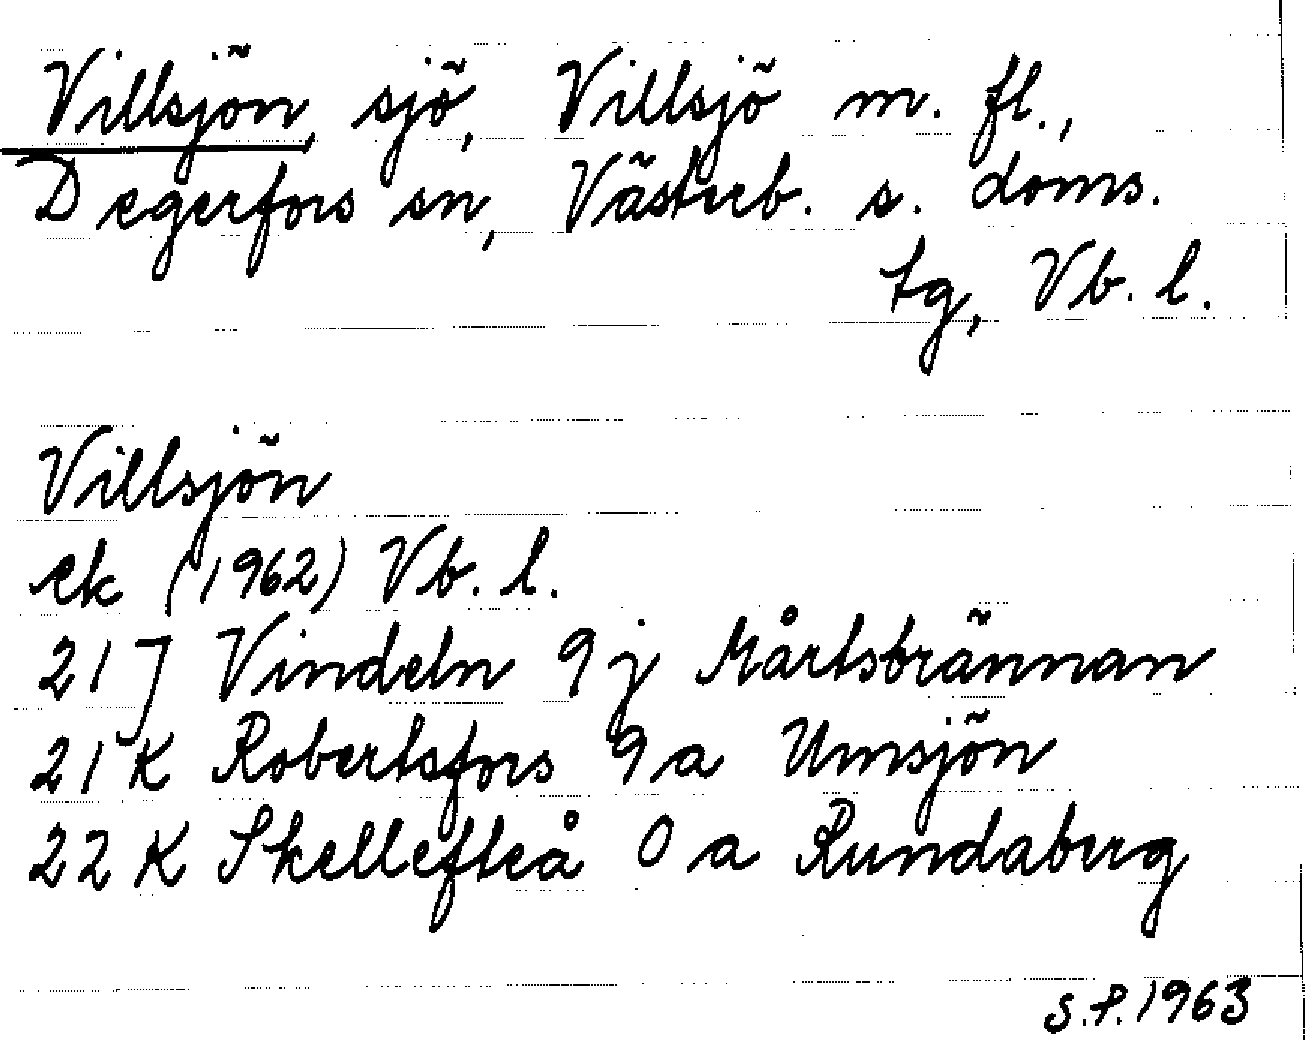 Villsjön, sjö, Villsjö m. fl.,
Degerfors sn, Västerb. s. doms.
tg, Vb. l.
Villsjön
ek (1962) Vb. l.
21J Vindeln 9j Mårtsbrännan
21K Robertsfors 9a Umsjön
22K Skellefteå 0a Rundaberg
S.P. 1963